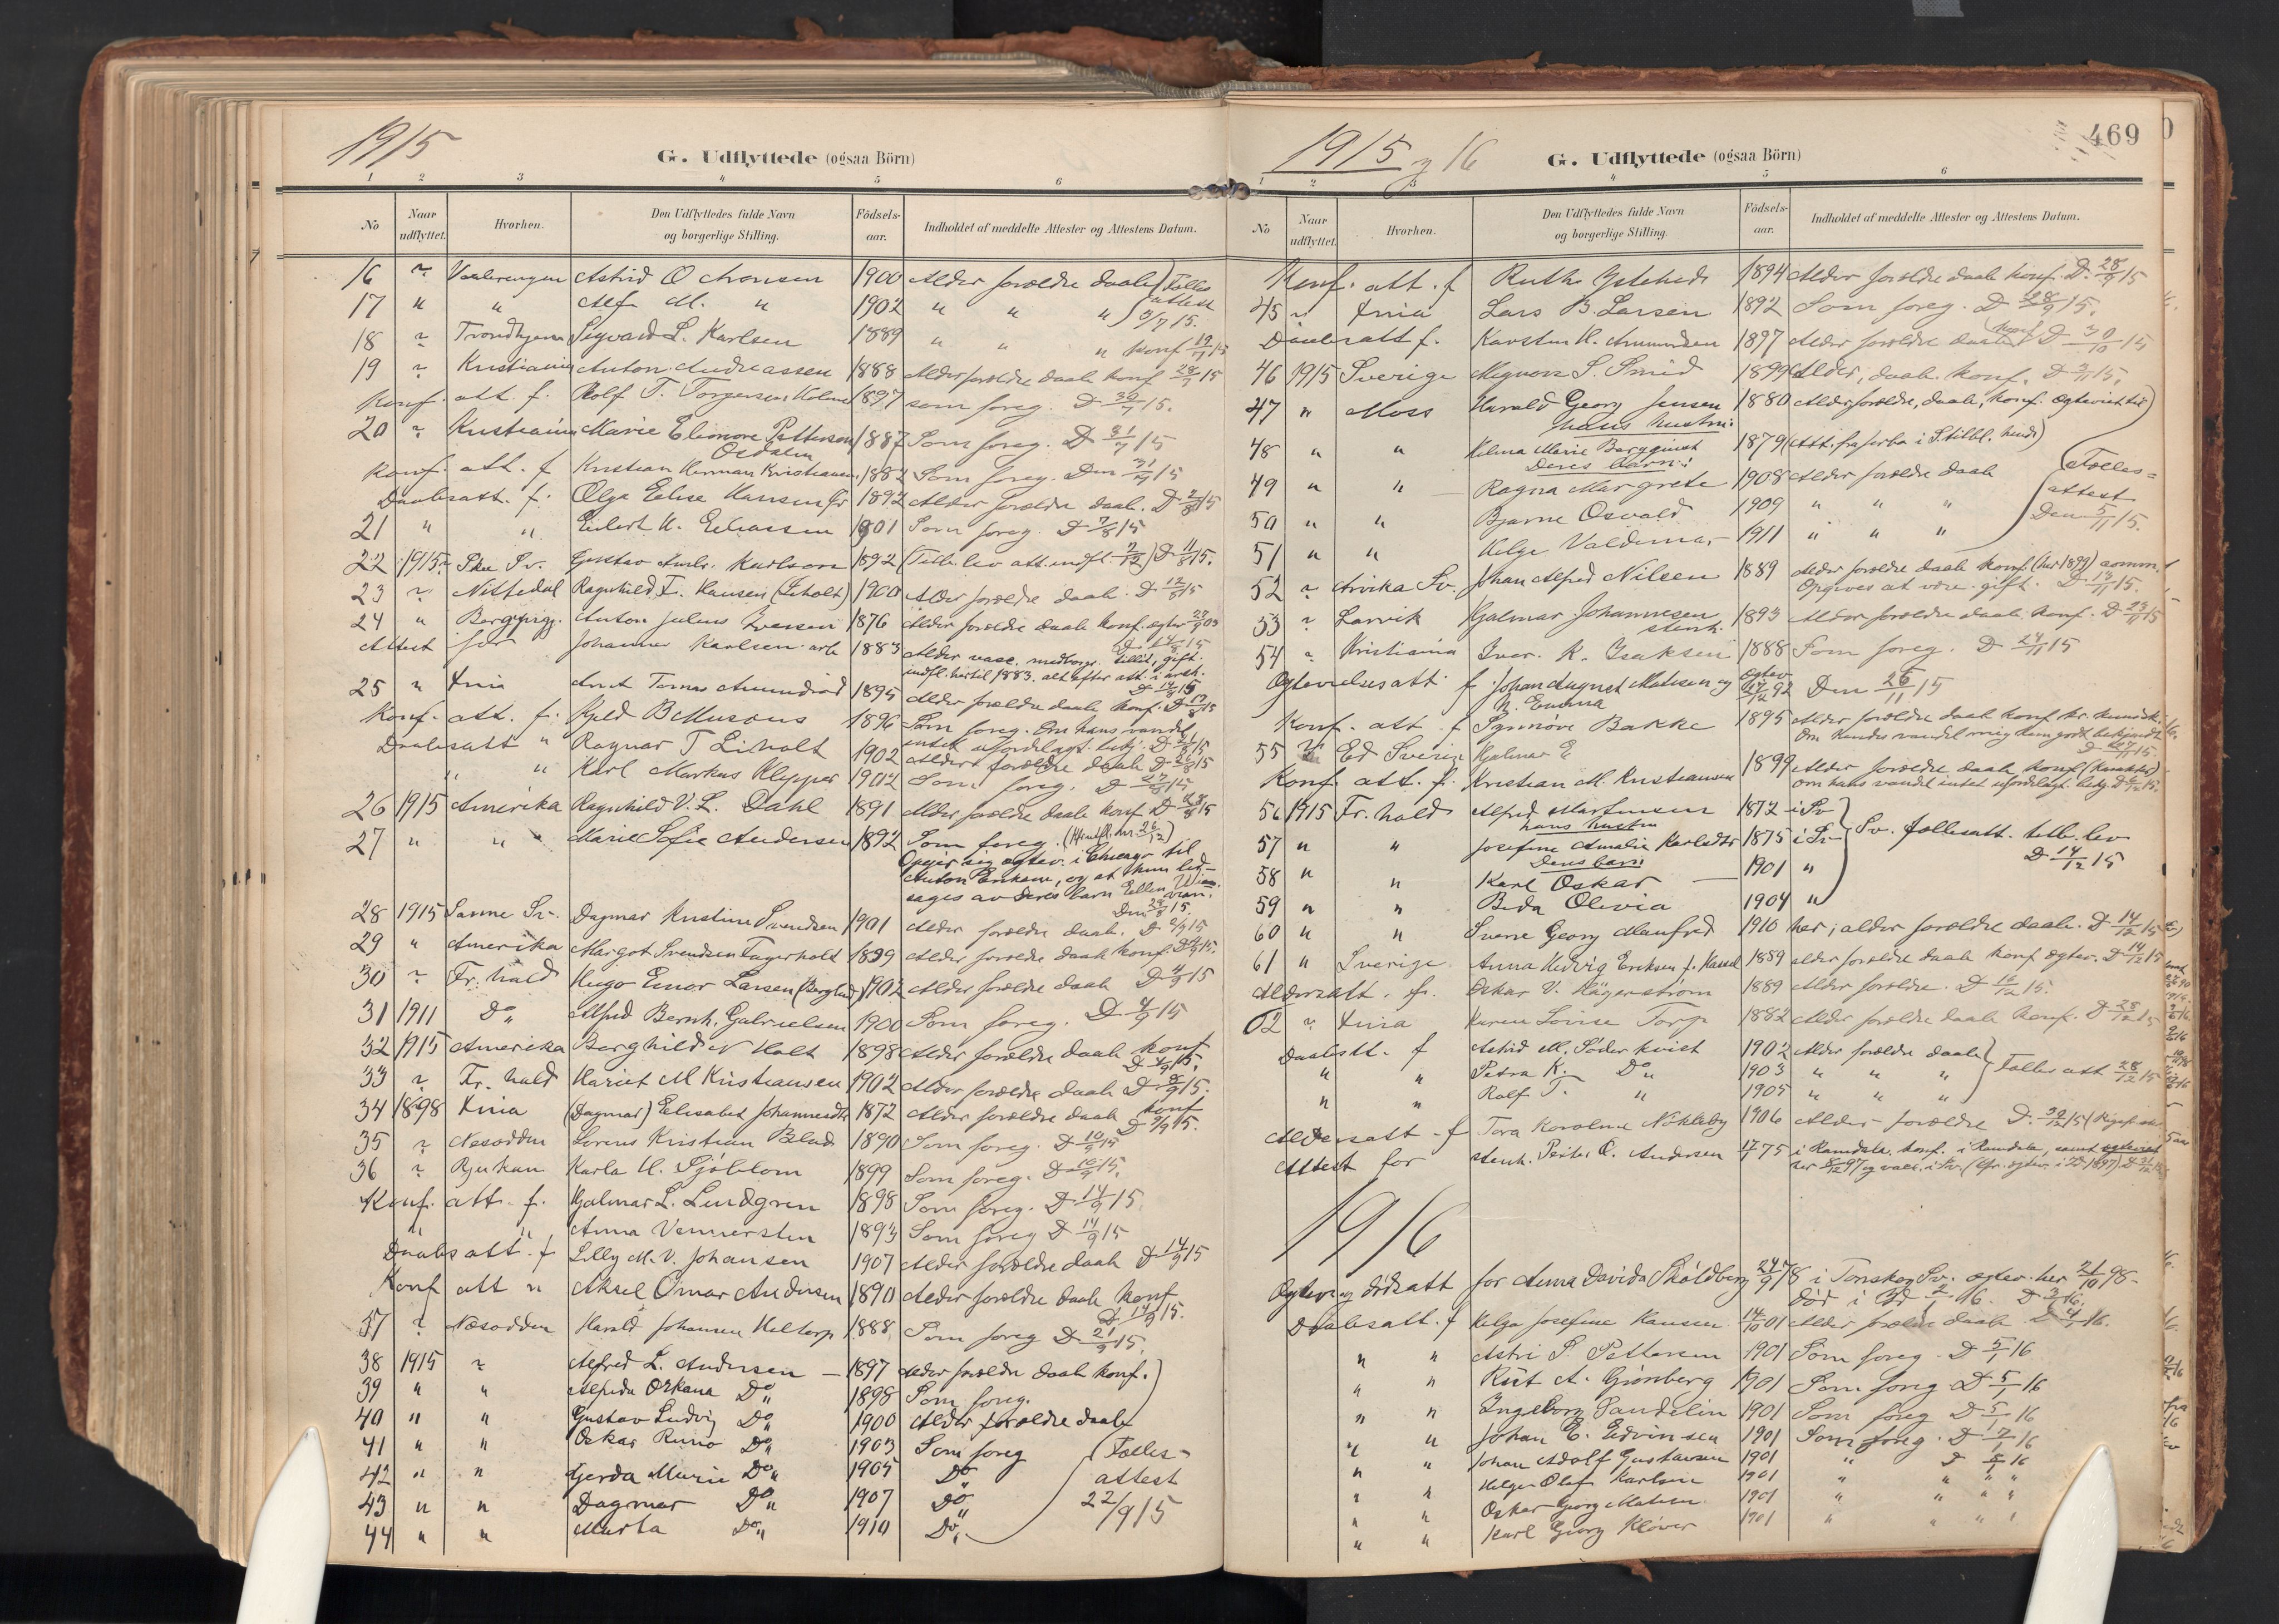 1915
G. Udflyttede (ogsaa Börn)
1 2 3 4 5 6
No
Naar udflyttet.
Hvorhen.
Den Udflyttedes fulde Navn og borgerlige Stilling.
Födsels-aar.
Indholdet af meddelte Attester og Attestens Datum.
16 " Vaalerengen Astrid O Aronsen 1900 Alder forældre daab Fælles
17 " " Alf M. " 1902 " " " attest 3/7 15.
18 " Trondhjem Sigvard L. Karlsen 1889 " " " konf 19/7 15
19 " Kristiania Anton Andreassen 1888 Alder forældre daab konf 28/7 15
Konf. att. f. Rolf T. Torgersen Holm 1897 som foreg. D 30/7 15.
20 " Kristiania Marie Eleonore Pettersen 1887 Som foreg. D 31/7 15
Konf. att. f Kristian Herman Kristiansen 1882 Som foreg. Den 31/7 15
Daabsatt. f. Olga Elise Hansen 1892 Alder forældre daab. D 2/8 15
21 " " Eilert H. Eliassen 1901 Som foreg. D 7/8 15
22 1915 Sv. Gustav Karlson 1892 D 11/8 15.
23 " Nittedal Ragnhild F. Hansen (Liholt) 1900 Alder forældre daab D 12/8 15
24 " Anton Julius Iversen 1876 Alder forældre daab konf. ægtev
Attest for Johannes Karlsen arb 1883 Alder vacc. medborg. tillid, gift.
indfl. hertil 1883. alt efter att. i arch.
25 " Kria Tomas Amundrød 1895 Alder forældre daab konf. D
Konf. att. f. Kjeld B 1896 Som foreg. Om hans vandel
intet ufordelagt. bekj.
Daabsatt " Ragnar T Liholt 1902 Alder forældre daab D 26/8 15
" " Karl Markus Klepper 1902 Som foreg. D 27/8 15
26 1915 Amerika Ragnhild V. L. Dahl 1891 Alder forældre daab konf D 28/8 15
27 " " Marie Sofie Andersen 1892 Som foreg.
Opgir sig ægtev. i Chicago til
Anton Eriksen, og at hun led-
sages av deres barn Ellen
Den 28/8 15
28 1915 Sanne Sv. Dagmar Kristine Svendsen 1901 Alder forældre daab. D 2/9 15
29 " Amerika Margot Svendsen Fagerholt 1899 Alder forældre daab konf. D 15.
30 " Fr. hald Hugo Einor Larsen (Berglund) 1902 Alder forældre daab D 3/9 15
31 1911 Do " Alfred Bernh. Gabrielsen 1900 Som foreg. D 4/9 15
32 1915 Amerika Borghild N Holt 1898 Alder forældre daab konf
D 4/9 15.
33 " Fr. hald Hariet M Kristiansen 1902 Alder forældre daab D 8/9 15.
34 1898 Kria (Dagmar) Elisabet Johannesdtr 1872 Alder forældre daab konf
D 9/9 15.
35 " Nesodden Lorens Kristian Blad 1890 Som foreg. D 10/9 15
36 " Rjukan Karla H. Sjöblom 1899 Som foreg. D 10/9 15.
Konf. att. f. Hjalmar L. Lindgren 1898 Som foreg. D 14/9 15.
" " Anna Vennersten 1893 Som foreg D 14/9 15
Daabsatt. f Lilly M. V. Johansen 1907 Alder forældre daab D 14/9 15
Konf att " Aksel Omar Andersen 1890 Alder forældre daab konf
D 14/9 15.
37 " Næsodden Harald Johansen Heltorp 1888 Som foreg D 21/9 15.
38 1915 " Alfred L. Andersen 1897 Alder forældre daab konf.
39 " " Alfrida Orkana Do " 1898 Som foreg.
40 " " Gustav Ludvig Do " 1900 Alder forældre daab
41 " " Oskar Runo Do " 1903 Som foreg Fælles-
42 " " Gerda Marie Do " 1905 Do attest
43 " " Dagmar Do " 1907 Do " 22/9 15
44 " " Marta Do " 1910 Do "
1915 og 16
469
G. Udflyttede (ogsaa Börn)
1 2 3 4 5 6
No
Naar udflyttet.
Hvorhen.
Den Udflyttedes fulde Navn og borgerlige Stilling.
Födsels-aar.
Indholdet af meddelte Attester og Attestens Datum.
Konf. att. f Ruth Ystehede 1894 Alder forældre daab konf. D. 28/9 15
45 " Kria Lars B. Larsen 1892 Som foreg. D 28/9 15.
Daabsatt f. Karsten H. Amundsen 1897 Alder forældre daab konf D 30/10 15
46 1915 Sverige S. Smid 1899 Alder, daab. konf. D 3/11 15.
47 " Moss Harald Georg Jensen 1880 Alder forældre, daab, konf. ægteviet til
hans hustru:
48 " " Helma Marie Bergquist 1879
Deres barn:
49 " " Ragna Margrete 1908 Alder forældre daab Fælles-
50 " " Bjarne Osvald 1909 " " " attest
51 " " Helge Valdemar 1911 " " " Den 5/11 15.
52 " Arvika Sv. Johan Alfred Nilsen 1889 Alder forældre daab konf. (her 1899)
Opgives at være gift. D 13/11 15.
53 " Larvik Hjalmar Johannesen 1893 Alder forældre daab konf. D 23/11 15
stenh.
54 " Kristiania Iver. K. Isaksen 1888 Som foreg. D 24/11 15
Ægtevielsesatt. f Johan August Madsen og ægtev
h. Emma 92 Den 26/11 15
Konf. att. f Synnöve Bakke 1895 Alder forældre daab konf kr. kundsk.
Om hendes vandel mig kun godt bekjendt
55 Ed Sverige Hjalmar E
Konf. att. f. Kristian M. Kristiansen 1899 Alder forældre daab konf (Karakter)
om hans vandel intet ufordelagt. bekj.
56 1915 Fr. hald Alfred Martinsen 1872 i Sv
hans hustru
57 " " Josefine Amalia Karlsdtr 1875 i Sv Sv. fællesatt. tilb. lev
Deres barn: D 14/12 15
58 " " Karl Oskar 1901 "
59 " " Beda Olivia 1904 "
60 " " Sverre Georg Manfred 1910 her; alder forældre daab. D 14/12 15
61 " Sverige Anna Hedvig Eriksen f. Hassel 1889 alder forældre daab konf ægtev. D 14/12 15
Aldersatt. fr. Oskar V. Hägerström 1889 Alder forældre. D 16/12 15.
62 " Kria Karen Lovise Torp 1882 Alder forældre daab konf. D 28/12 15
Daabsatt. f Astrid M. Söderkvist 1902 Alder forældre daab
" " Petra K. Do " 1903 " " " Fælles att 28/12 15
" " Rolf T. " 1905 " " "
Aldersatt. f Tora Karoline Nökleby 1906 Alder forældre D. 30/12 15
Attest for stenh. Peter O. Andersen 1775 i Ramdala, konf. i Ramdala, samt ægteviet
1916
Ægtev og dödsatt for Anna Davida Sköldberg 24/9 78 i Torskog Sv. ægtev. her 21/10 98.
död i 16. D 3/1 16.
Daabsatt. f Helga Josefine Hansen 14/10 01 Alder forældre daab D 4/1 16.
" " Astri S. Pettersen 1901 Som foreg. D 5/1 16
" " Rut A. Grönberg 1901 Som foreg D 5/1 16
" " Ingeborg Sandelin 1901 Som foreg D 5/1 16
" " Johan E. Edvinsen 1901 Som foreg. D 7/1 16
" " Johan Adolf Gustavsen 1901 " D 8/1 16
" " Helge Olaf Karlsen 1901 " " " "
" " Oskar Georg Madsen 1901 " " " "
" " Karl Georg Klöver 1901 " " " "